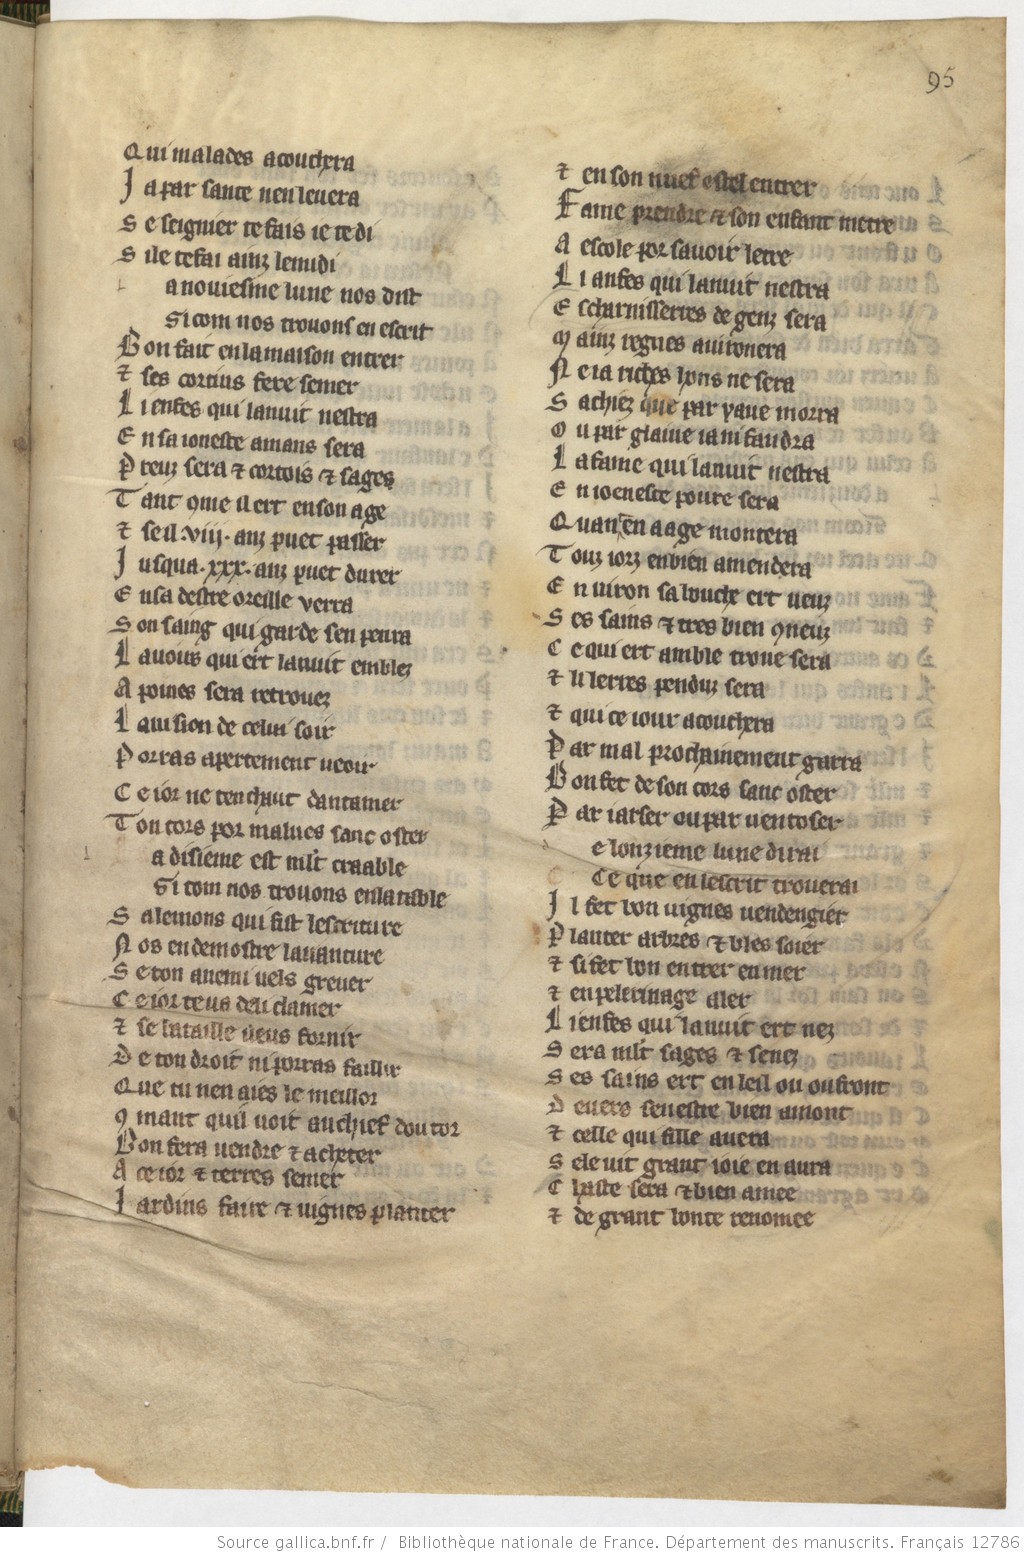 95
Qui malades acouchera
Ja par sante nen levera
Se seignier te fais je te di
Si le te fai ainz le midi
a noviesme lune nos dist
Si com nos trovons en escrit
Bon fait en la maison entrer
⁊ ses cortius fere semer
Li enfes qui la nuit nestra
En sa joneste amans sera
Preuz sera ⁊ cortois ⁊ sages
Tant 9me il ert en son age
⁊ se il .viij. anz puet passer
Jusqua .xxx. anz puet durer
En sa destre oreille verra
Son saing qui garde sen penra
La vous qui ert la nuit emblez
A poines sera retrovez
La vision de celui soir
Porras apertement veoir
Ce jor ne ten chaut dantamer
Ton cors por malves sanc oster
a disieme est mlt craable
Si com nos trovons en la table
Salemons qui fist lescriture
Nos en demostre lavanture
Se ton anemi vels grever
Ce jor te us deli clamer
⁊ se bataille veus fornir
De ton droit ni porras faillir
Que tu nen aies le meillor
9mant quil voit au chief dou tor
Bon fera vendre ⁊ acheter
A ce jor ⁊ terres semer
Jardins faire ⁊ vignes planter
⁊ en son nuef ostel entrer
Fame prendre ⁊ son enfant metre
A escole por savoir letre
Li anfes qui la nuit nestra
Escharnisserres de genz sera
Mainz regnes avironera
Ne ja riches hons ne sera
Sachiez que par yaue morra
Ou par glaive ja ni faudra
La fame qui la nuit nestra
En joeneste povre sera
Quan en aage montera
Touz jorz en bien amendera
Environ sa bouche ert veuz
Ses sains ⁊ tres bien 9neuz
Ce qui ert amble trove sera
⁊ li lerres penduz sera
⁊ qui ce jour acouchera
Par mal prochainement garra
Bon fet de son cors sanc oster
Par jarser ou par ventoser
e lonzieme lune dirai
Ce que en lescrit troverai
Il fet bon vignes vendengier
Planter arbres ⁊ bles soier
⁊ si fet bon entrer en mer
⁊ en pelerinage aler
Li enfes qui la nuit ert nez
Sera mlt sages ⁊ senez
Ses sains ert en leil ou ou front
Devers senestre bien amont
⁊ celle qui fille avera
Sele vit grant joie en aura
Chaste sera ⁊ bien amee
⁊ de grant bonte renomee
Source gallica.bnf.fr / Bibliothèque nationale de France. Département des manuscrits. Français 12786